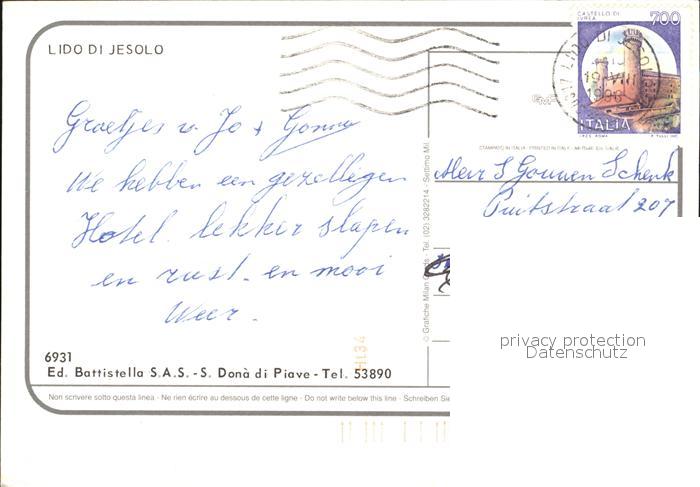 LIDO DI JESOLO
CASTELLO DI
IVREA
700
LIDO DI JESOLO
19 VIII
ITALIA
I.P.Z.S. ROMA
Groetjes v. Jo + Gonny
We hebben een gezelligen
Hotel. lekker slapen
en rust. en mooi
Weer.
STAMPATO IN ITALIA - PRINTED IN ITALY
© Grafiche Milan Cards - Tel. (02) 3282214 - Settimo Mil.
Schenk
Putstraat 207
HL34
6931
Ed. Battistella S.A.S. - S. Donà di Piave - Tel. 53890
Non scrivere sotto questa linea - Ne rien écrire au dessous de cette ligne - Do not write below this line - Schreiben Sie
privacy protection
Datenschutz